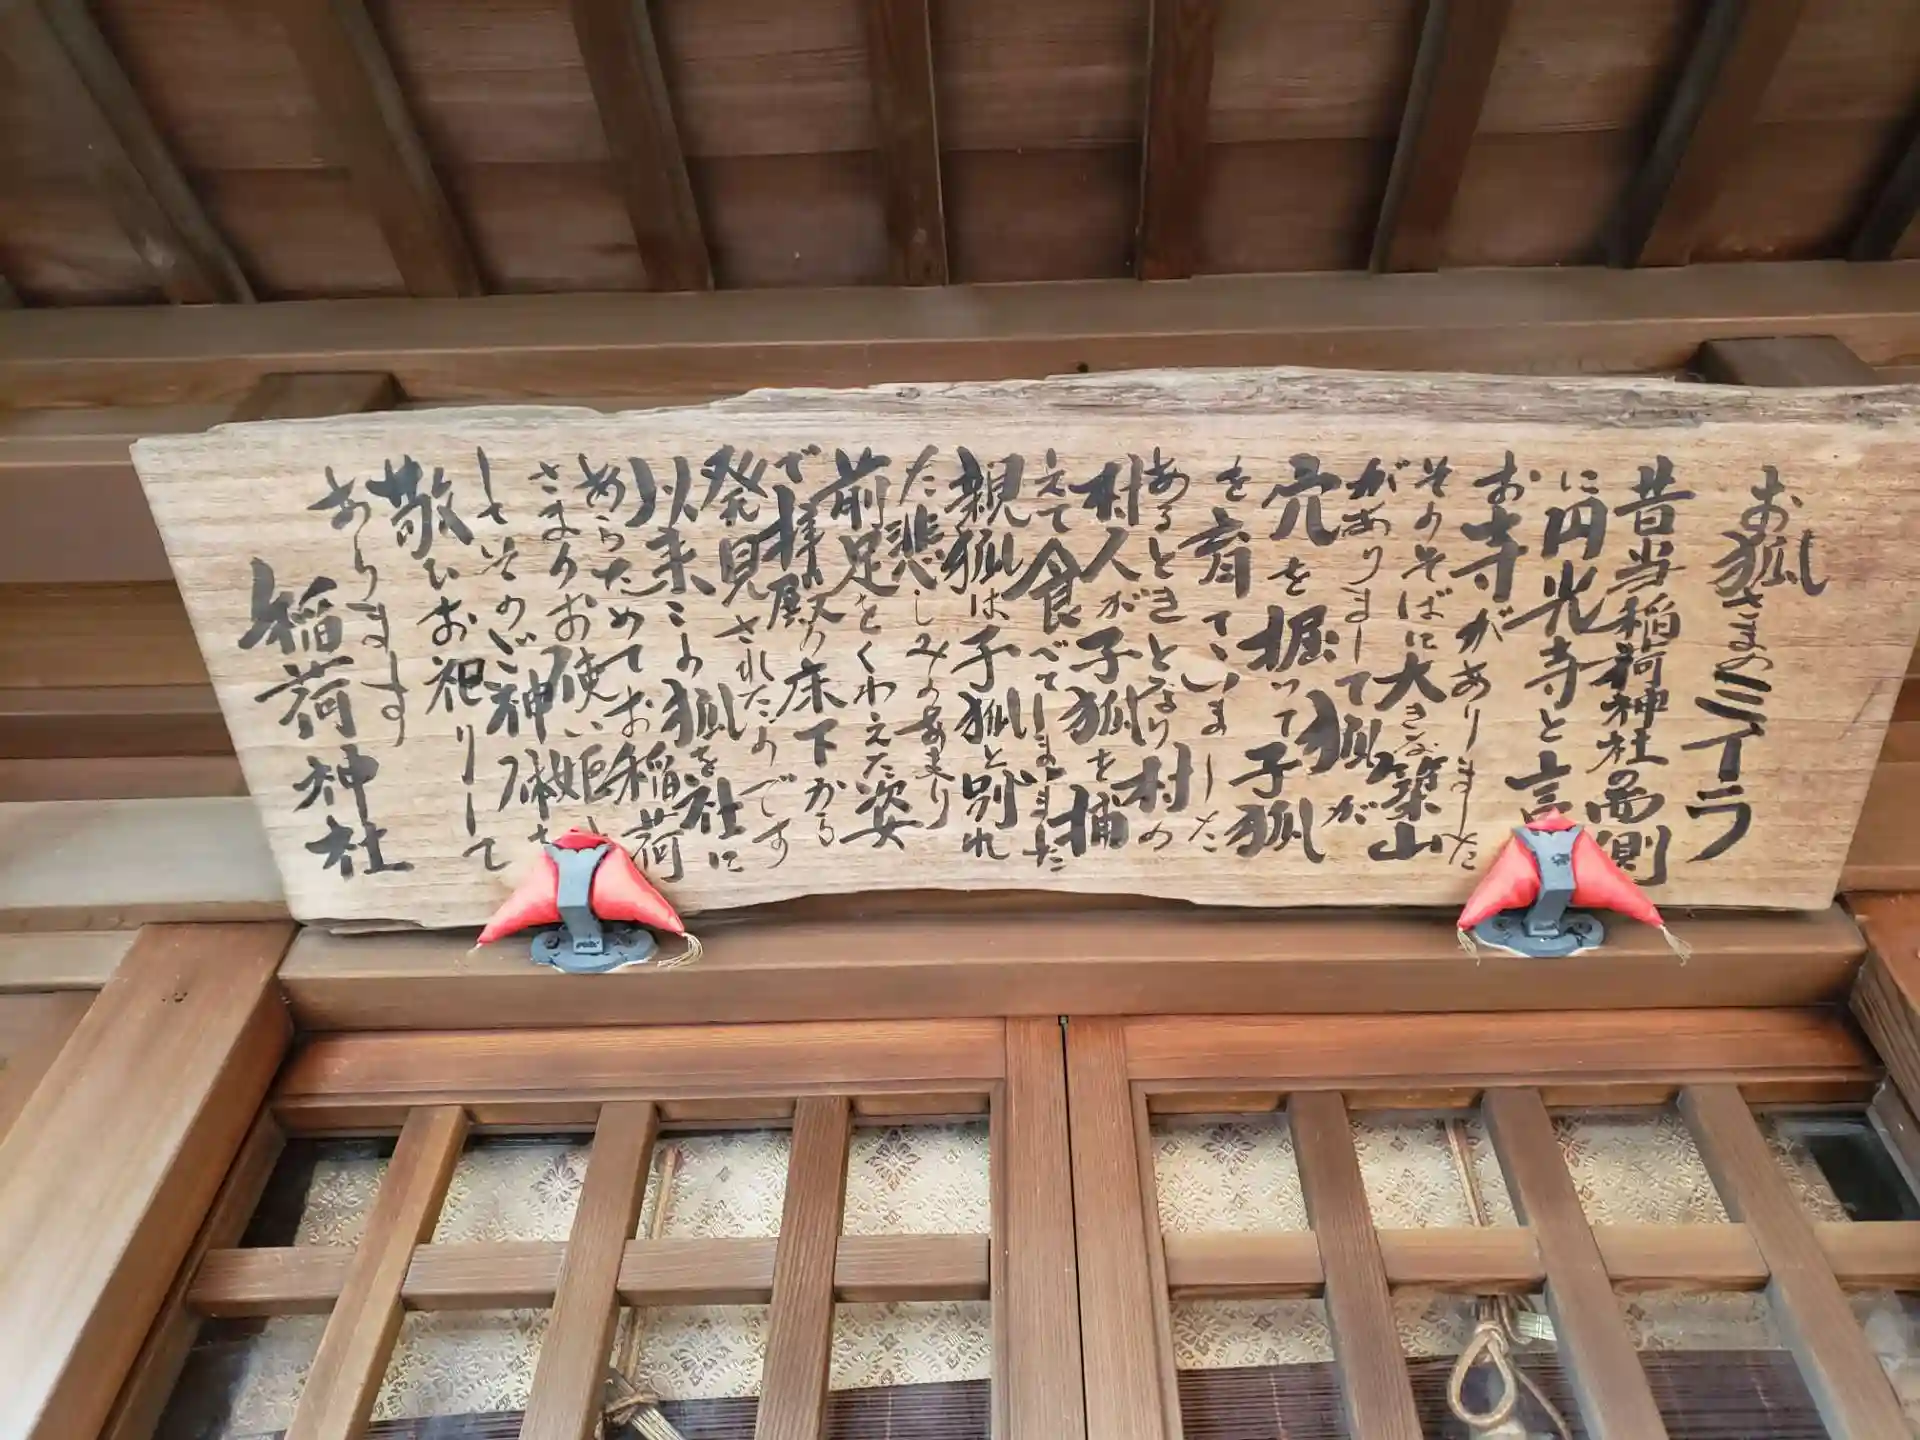 お狐さまのミイラ
昔当稲荷神社の西側
に円光寺と言
お寺がありました
そのそばに大きな築山
がありまして狐が
穴を掘って子狐
を育てていました
あるときとなり村の
村人が子狐を捕
えて食べてしまいました
親狐は子狐と別れ
た悲しみのあまり
前足をくわえた姿
で拝殿の床下から
発見されたのです
以来この狐を社に
あらためてお稲荷
さまのお使い姫と
してそのご神徳を
敬ひお祀りして
あります
稲荷神社